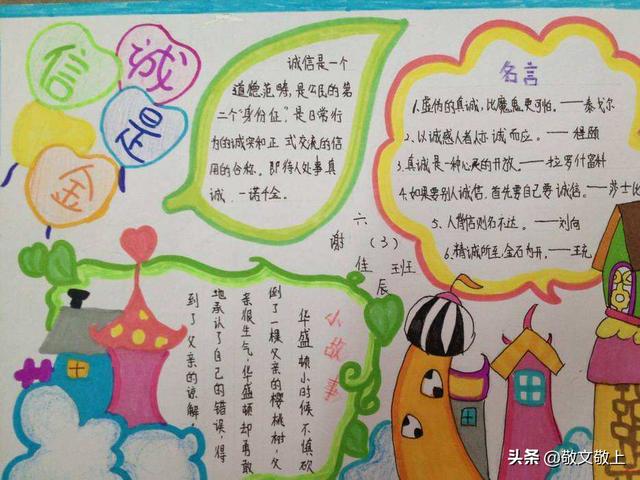 诚信是金
诚信是一个
道德范畴,是公民的第
二个“身份证”,是日常行
为的诚实和正式交流的信
用的合称。即待人处事真
诚、一诺千金。
名言
1.虚伪的真诚,比魔鬼更可怕。——泰戈尔
2.以诚感人者,人亦诚而应。——程颐
3.真诚是一种心灵的开放。——拉罗什富科
4.如果要别人诚信,首先要自己要诚信。——莎士比
5.人背信则名不达。——刘向
6.精诚所至,金石为开。——王充
六(3)班
谢佳辰
小故事
华盛顿小时候不慎砍
倒了一棵父亲的樱桃树,父
亲很生气,华盛顿却勇敢
地承认了自己的错误,得
到了父亲的谅解。
头条 @敬文敬上